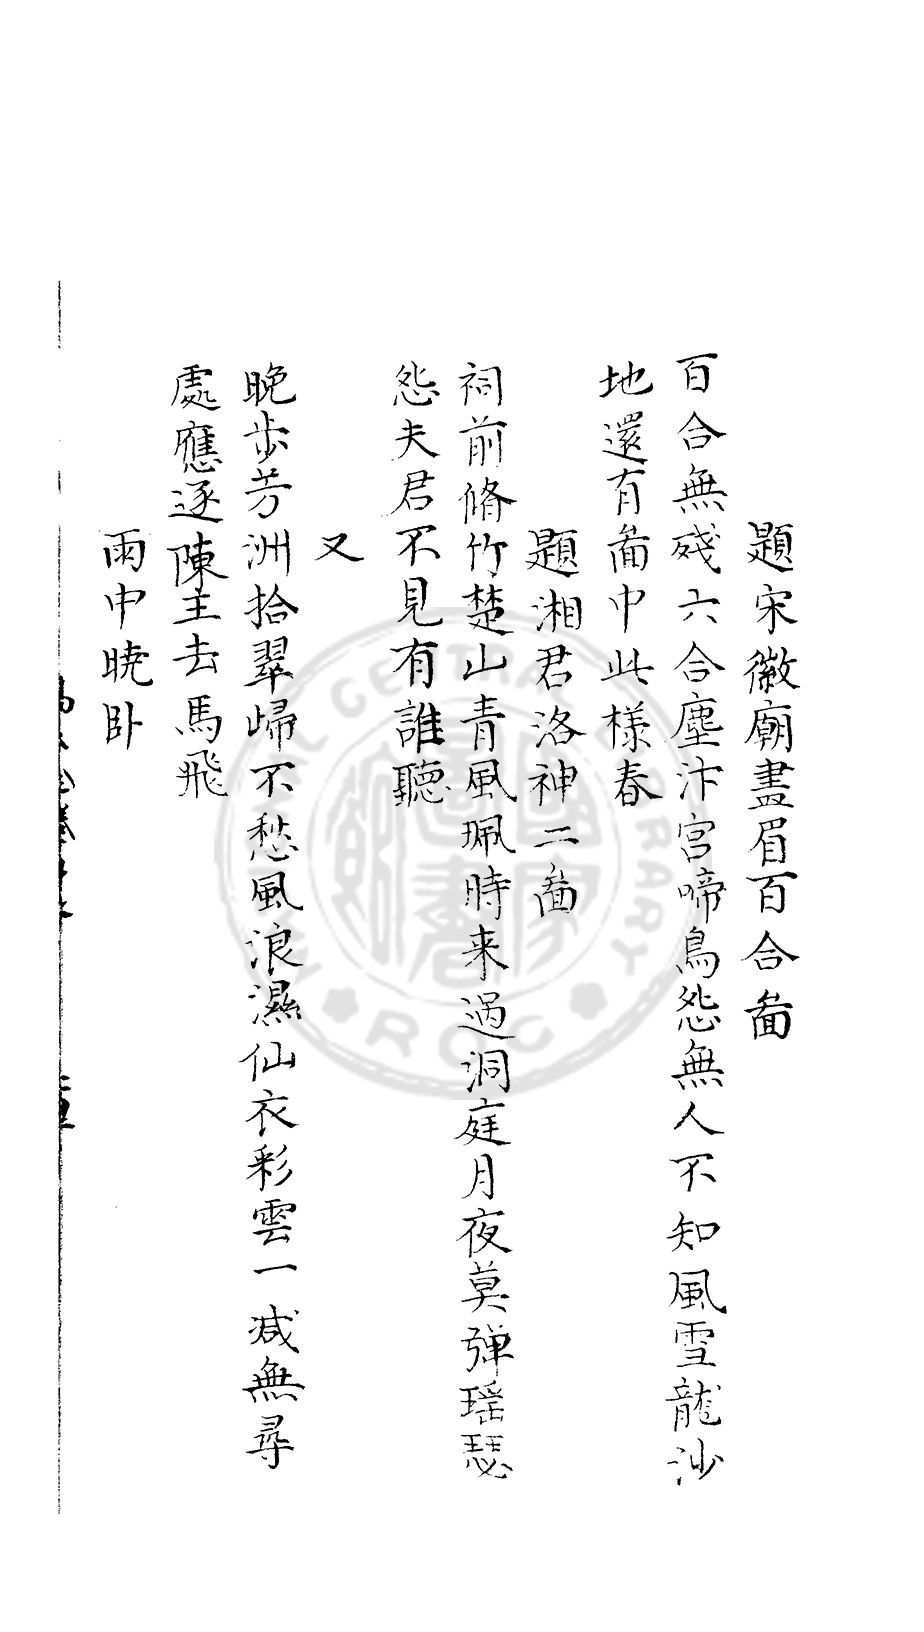 題宋徽廟畫眉百合啚
百合無殘六合塵汴宮啼鳥怨無人不知風雪龍沙
地還有啚中此樣春
題湘君洛神二啚
祠前脩竹楚山青風珮時来過洞庭月夜莫弹瑶瑟
怨夫君不見有誰聽
又
晚步芳洲拾翠歸不愁風浪濕仙衣彩雲一减無尋
處應逐陳王去馬飛
雨中曉卧